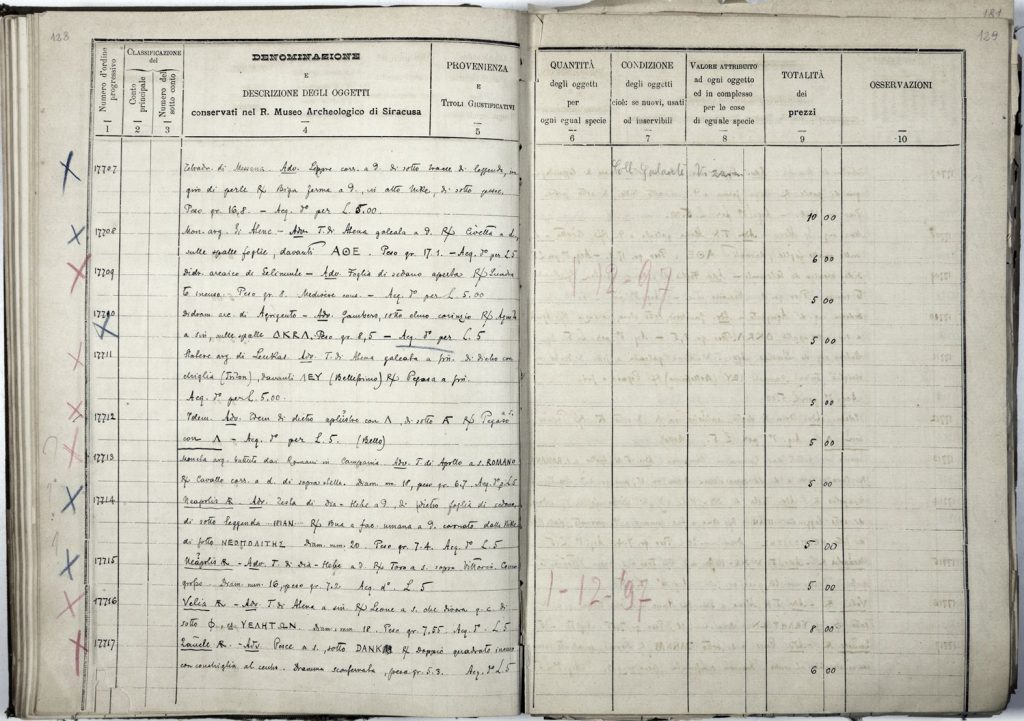 128
Numero d'ordine progressivo
CLASSIFICAZIONE del
Conto principale
Numero del sotto conto
DENOMINAZIONE
E
DESCRIZIONE DEGLI OGGETTI
conservati nel R. Museo Archeologico di Siracusa
PROVENIENZA
E
TITOLI GIUSTIFICATIVI
1 2 3 4 5
17707 Tetradr. di Messana. Adv. Leppre corr. a d. di sotto tracce di leggenda,
giro di perle R/ Biga ferma a d., in alto Nike, di sotto pesce.
Peso gr. 16,8. — Acq. d° per L. 5.00
17708 Mon. arg. di Atene — Adv. T. di Atena galeata a d. R/ Civetta a d.,
sulle spalle foglie, davanti ΑΘΕ. Peso gr. 17.1. — Acq. d° per L. 5
17709 Didr. arcaico di Selinunte — Adv. Foglia di sedano aperta R/ Quadra
to incuso. Peso gr. 8. Mediocre cons. — Acq. d° per L. 5.00
17710 Didram. arc. di Agrigento — Adv. Gambero, sotto elmo corinzio R/ Aquila
a sin, sulle spalle Peso gr. 8,5 — Acq. d° per L. 5
17711 Statere arg. di Leukas. Adv. T. di Atena galeata a sin. di dietro con
chiglia (Triton), davanti ΛΕΥ (Bellissimo) R/ Pegaso a sin.
Acq. d° per L. 5.00.
17712 Idem. Adv. Idem di dietro aplustre con Λ, di sotto R/ Pegaso a s.
con Λ — Acq. d° per L. 5. (Bello)
17713 Moneta arg. battuta dai Romani in Campania. Adv. T. di Apollo a s. ROMANO
R/ Cavallo corr. a d. di sopra stella. Diam. mm. 18, peso gr. 6.7. Acq. d° p. L. 5
17714 Neapolis — Adv. Testa di Dia-Hebe a d., di dietro foglia di sedano,
di sotto leggenda R/ Bue a fac. umana a d. coronato dalla Nike
di sotto ΝΕΟΠΟΛΙΤΗΣ Diam. mm. 20. Peso gr. 7.4. Acq. d° L. 5
17715 Neapolis — Adv. T. di Dia-Hebe a d. R/ Toro a s. sopra Vittoria.
Diam. mm. 16, peso gr. 7.2. Acq. d°. L. 5
17716 Velia — Adv. T. di Atena a sin. R/ Leone a s. che divora q.c. di
sotto Φ, ΥΕΛΗΤΩΝ. Diam. mm. 18. Peso gr. 7.55. Acq. d°. L. 5
17717 Zancle — Adv. Pesce a s., sotto DANK R/ Doppio quadrato incuso
con conchiglia al centro. Dramma conservata, peso gr. 5.3. Acq. d° L. 5
181
129
QUANTITÀ
degli oggetti
per
ogni egual specie
CONDIZIONE
degli oggetti
cioè: se nuovi, usati
od inservibili
VALORE ATTRIBUITO
ad ogni oggetto
ed in complesso
per le cose
di eguale specie
TOTALITÀ
dei
prezzi
OSSERVAZIONI
6 7 8 9 10
10 00
6 00
1-12-97
5 00
5 00
5 00
5 00
5 00
5 00
1-12-97
5 00
8 00
6 00